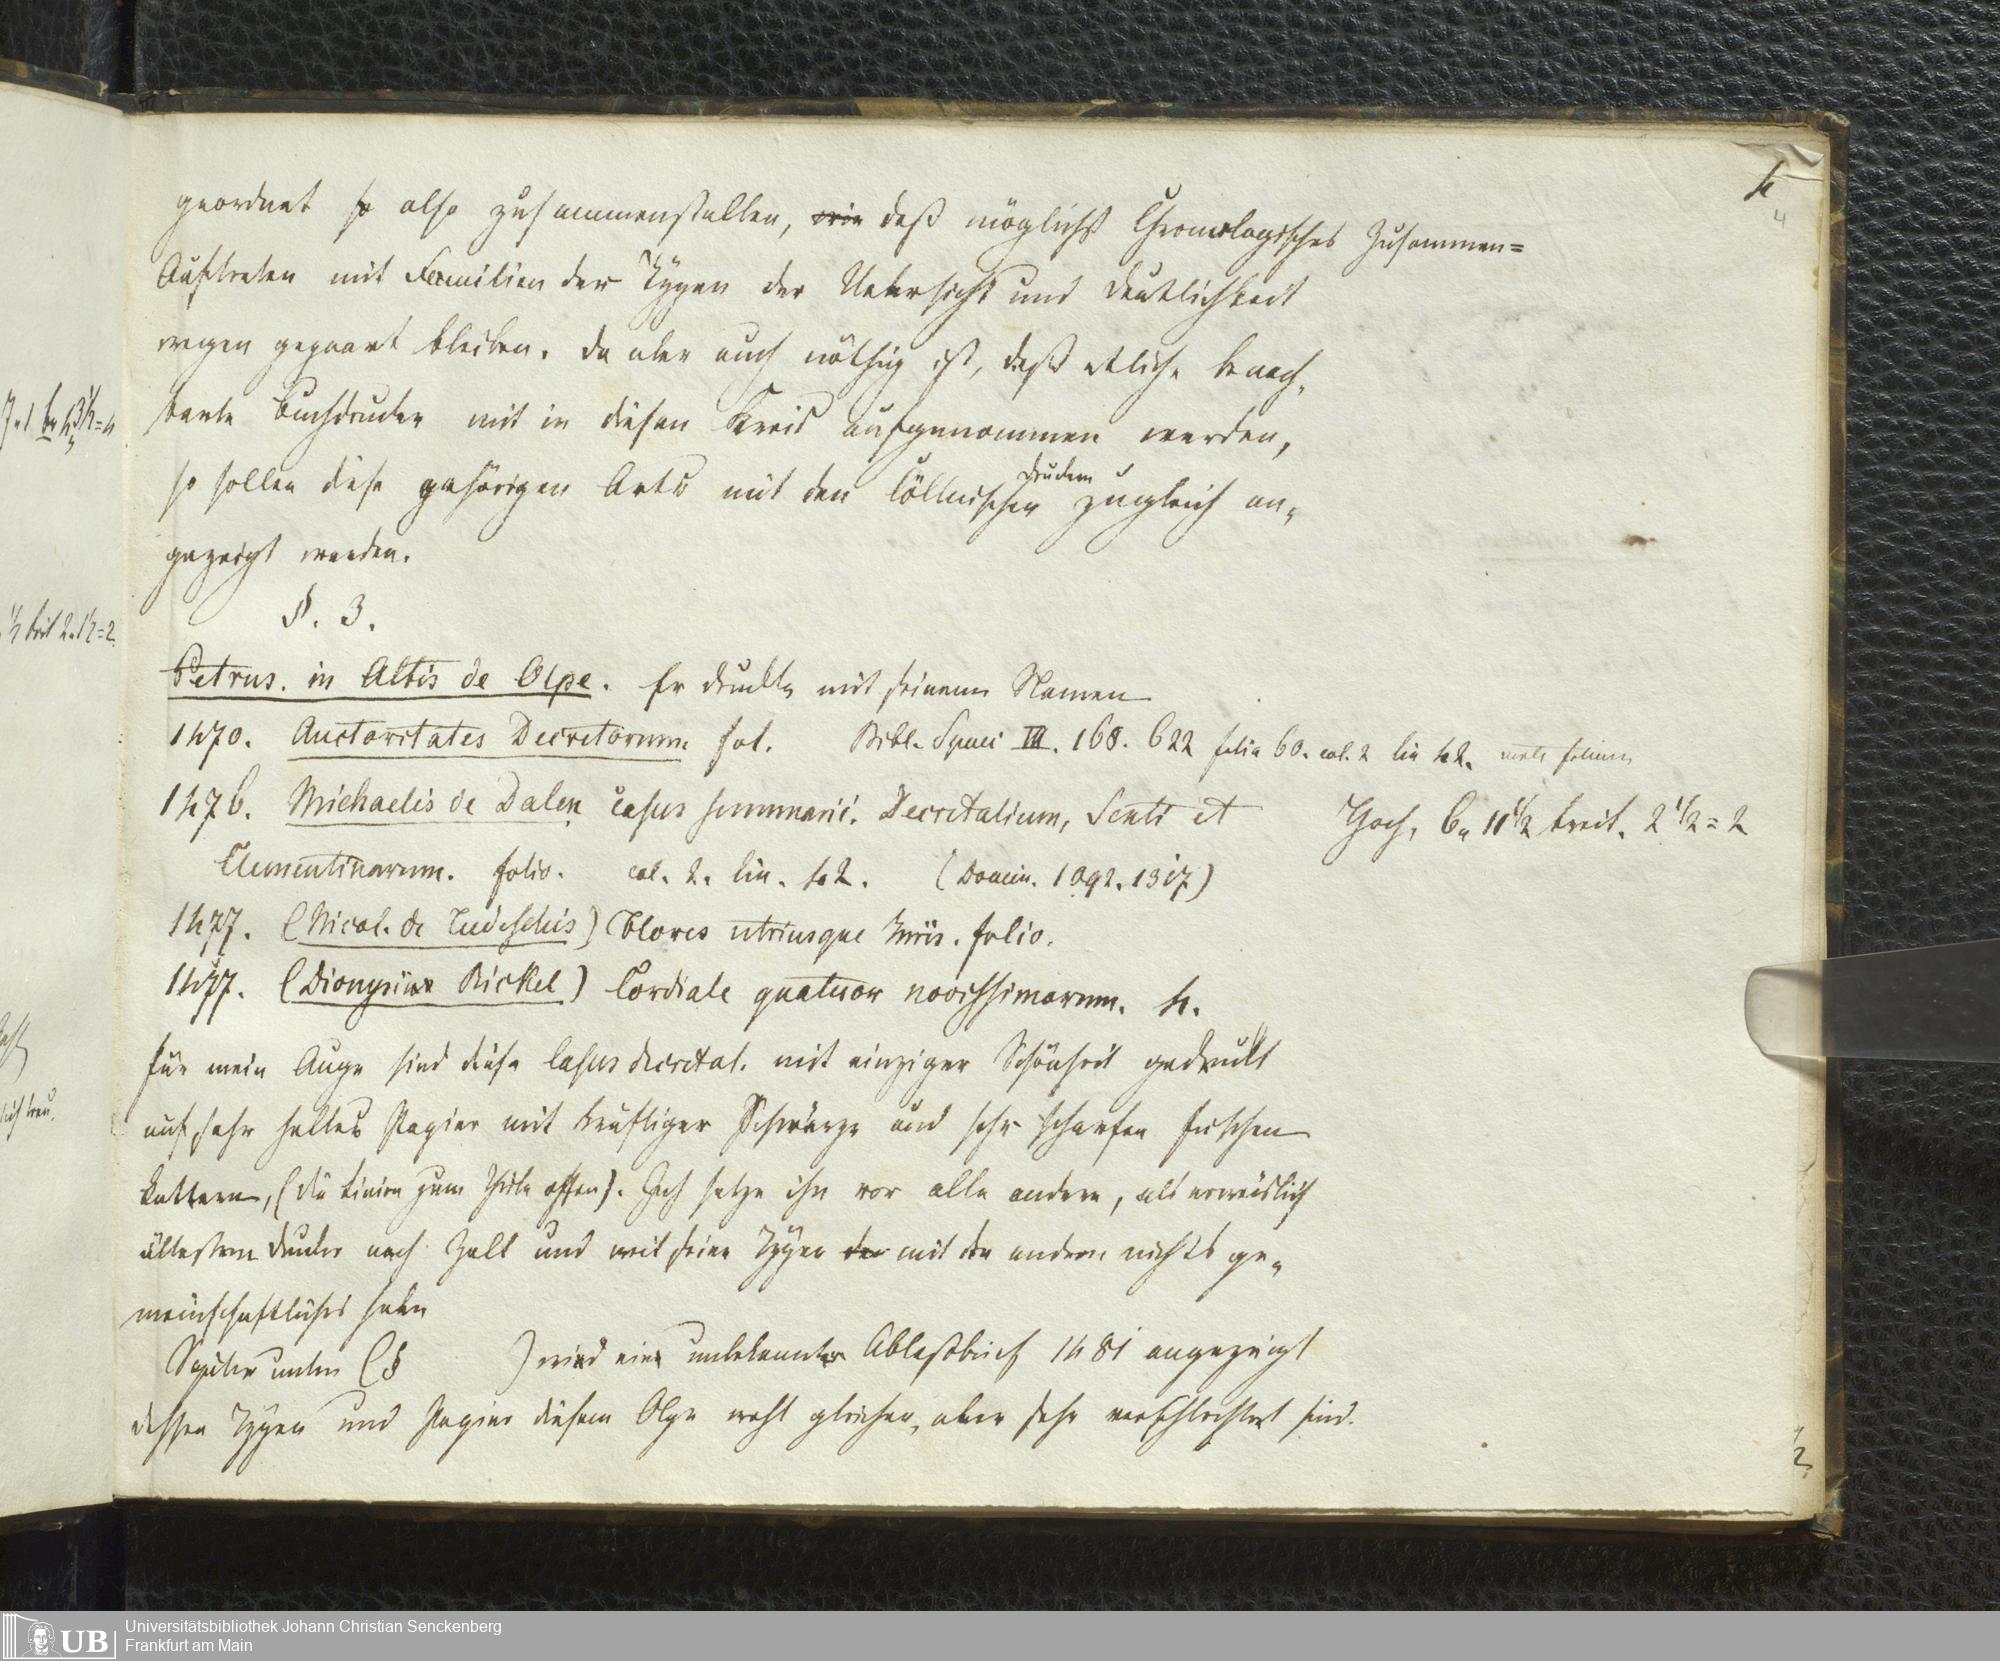 4
4
geordnet so also zusammenstellen, wie daß möglichst Chronologisches Zusammen=
Auftreten mit Familien der Typen der Uebersicht und Deutlichkeit
wegen gepaart bleiben. Da aber auch nöthig ist, daß etliche benach-
barte Buchdrucker mit in diesen Kreis aufgenommen werden,
so sollen diese gehörigen Orts mit den Cöllnischen Druckern zugleich an-
gezeigt werden.
§. 3.
Petrus. in Altis de Olpe. Er druckte mit seinem Namen
1470. Auctoritates Decretorum fol. Bibl. Spenc III. 168. 622 folia 60. col. 2 lin 42.
1476. Michaelis de Dalen Casus summarii. Decretalium, Sexti et
Hoch, 6" 11 1/2 breit. 2 1/2 = 2
Clementinarum. folio. col. 2. lin. 42.
1477. (Nicol. de Tudeschis) Flores utriusque Juris. folio.
1477. (Dionysius Rickel) Cordiale quatuor novissimorum. 4.
für mein Auge sind diese Casus decretal. mit einziger Schönheit gedruckt
auf sehr helles Papier mit kräftiger Schwärze und sehr scharfen frischen
Lettern, (die Linien zum Theile offen). Ich setze ihn vor alle andere, als erweislich
ältesten Drucker nach Zell und weil seine Typen der mit den andern nichts ge-
meinschaftliches haben
Später unten (§ ) wird ein unbekannter Ablaßbrief 1481 angezeigt
dessen Typen und Papier diesem Olpe wohl gleichen, aber sehr verschlechtert sind.
Universitätsbibliothek Johann Christian Senckenberg
Frankfurt am Main
UB